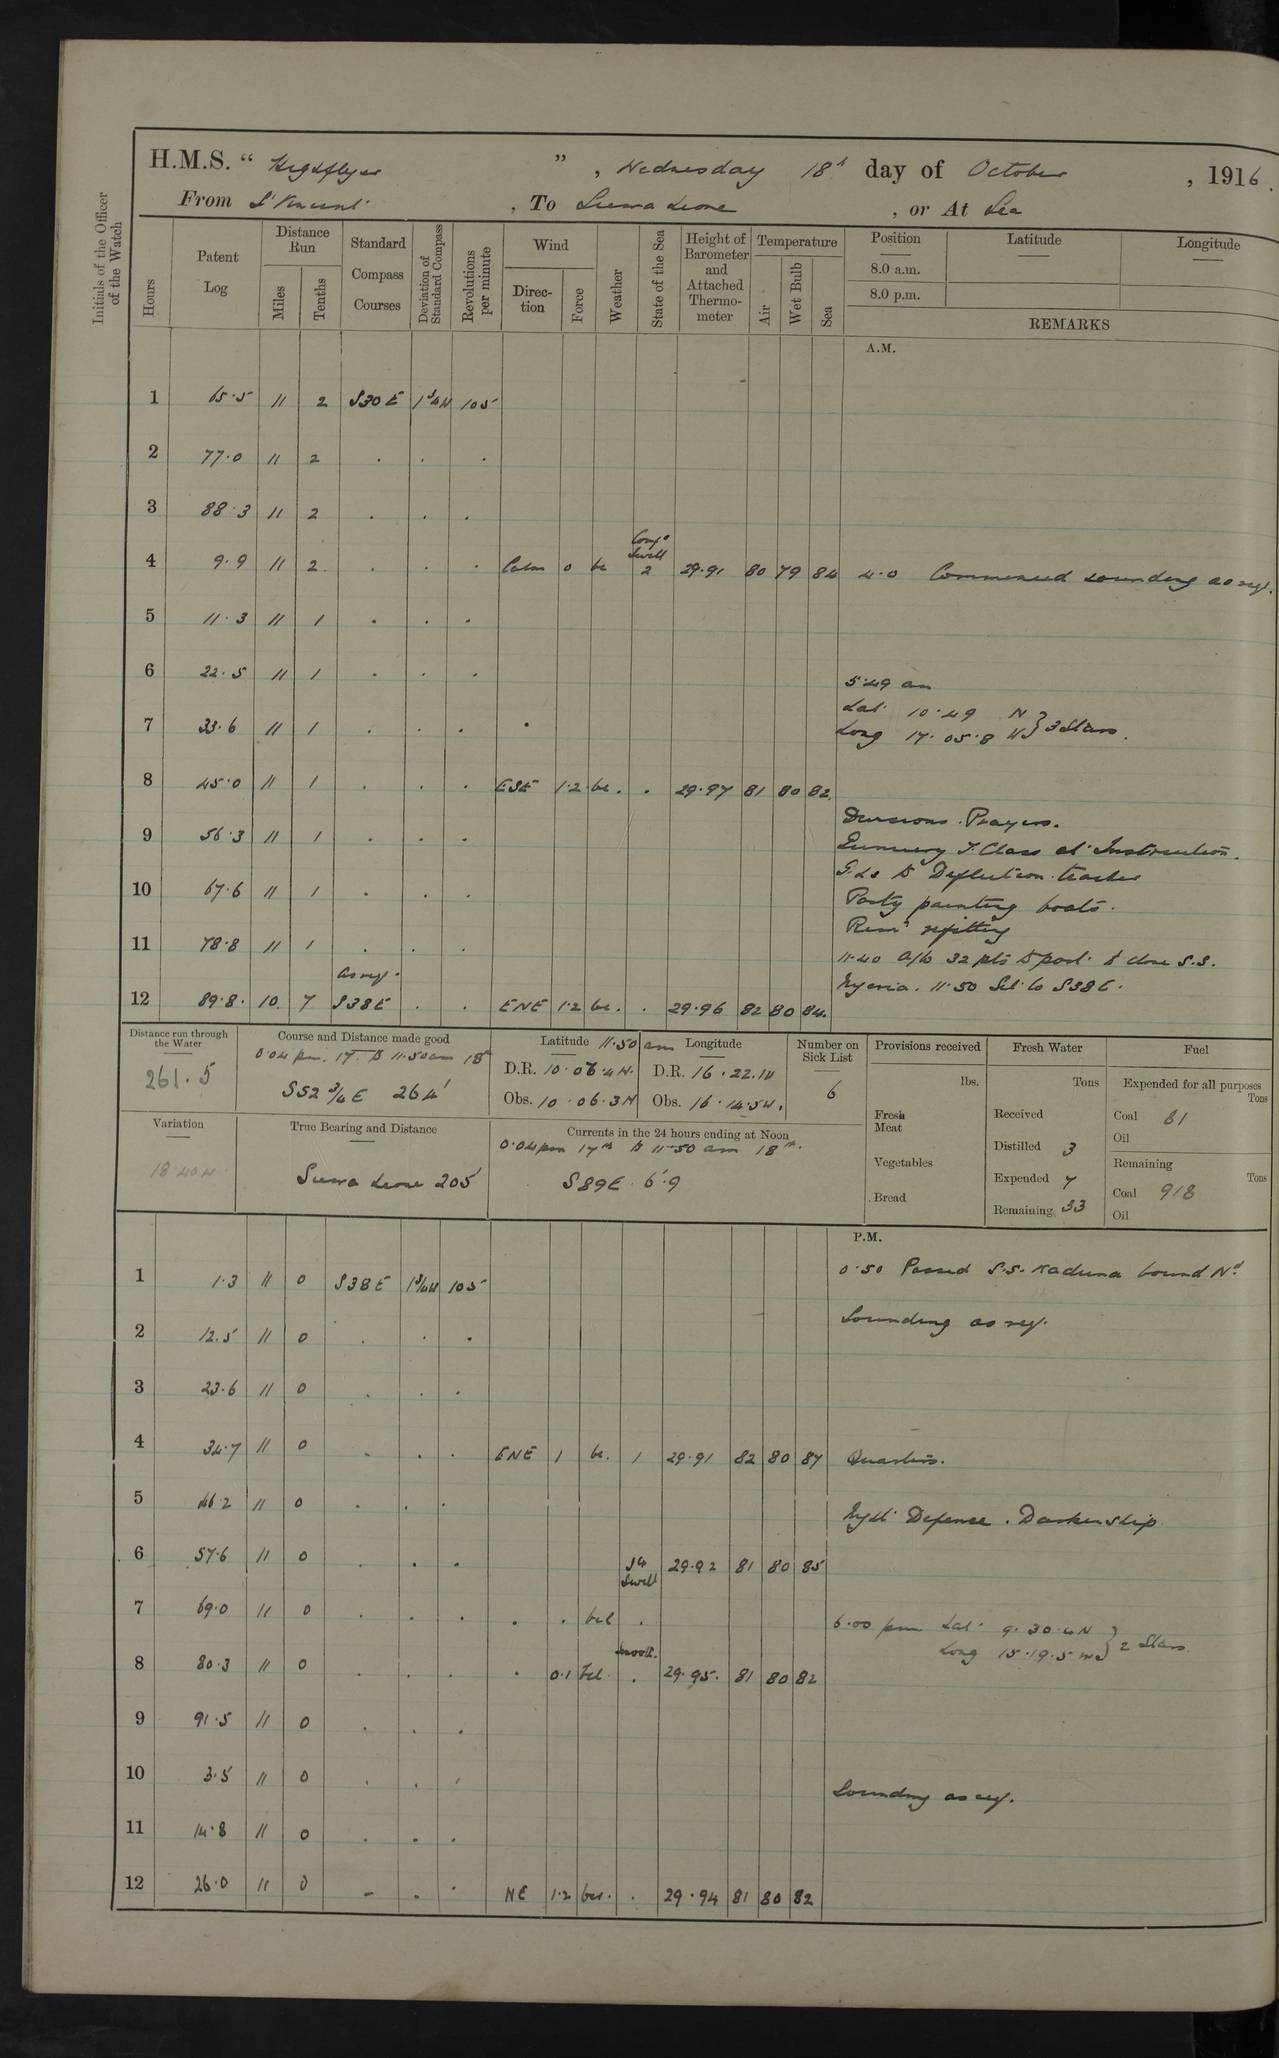 H.M.S. " Highflyer ", Wednesday 18th day of October, 1916.
From St Vincent, To Sierra Leone, or At Sea
Initials of the Officer of the Watch
Hours Patent Log Distance Run Miles Tenths Standard Compass Courses Deviation of Standard Compass Revolutions per minute Wind Direction Force Weather State of the Sea Height of Barometer and Attached Thermometer Temperature Air Wet Bulb Sea Position Latitude Longitude
8.0 a.m.
8.0 p.m.
REMARKS
A.M.
1 65.5 11 2 S30E 1¾W 105
2 77.0 11 2 . . .
3 88.3 11 2 . . .
Long
Swell
4 9.9 11 2 . . . Calm 0 bc 2 29.91 80 79 84 4.0 Commenced sounding as req.
5 11.3 11 1 . . .
6 22.5 11 1 . . .
5.49 am
Lat. 10.49 N
7 33.6 11 1 . . . . Long 17.05.8 W } 3 Stars.
8 45.0 11 1 . . . ESE 1.2 bc . . 29.97 81 80 82
Divisions. Prayers.
9 56.3 11 1 . . . Gunnery T. Class at Instruction.
G.Ls to Deflection teacher
10 67.6 11 1 . . . Party painting boats.
Remr refitting
11 78.8 11 1 . . . 11.40 A/c 32 pts to port to close S.S.
as req.
12 89.8 10 7 S38E . . ENE 1.2 bc . . 29.96 82 80 84 Nigeria. 11.50 Set Co S38E.
Distance run through the Water
261.5
Course and Distance made good
0.04 pm. 17. to 11.50 am 18th
S52¾E 264'
Latitude 11.50 am Longitude
D.R. 10.06.4N. D.R. 16.22.W
Obs. 10.06.3N Obs. 16.14.5W.
Number on Sick List
6
Provisions received
lbs.
Fresh Meat
Vegetables
Bread
Fresh Water
Tons
Received
Distilled 3
Expended 7
Remaining 33
Fuel
Expended for all purposes
Tons
Coal 81
Oil
Remaining
Tons
Coal 918
Oil
Variation
18.40W
True Bearing and Distance
Sierra Leone 205'
Currents in the 24 hours ending at Noon
0.04 pm 17th to 11.50 am 18th.
S89E 6'.9
P.M.
1 1.3 11 0 S38E 1¾W 105 0.50 Passed S.S. Kaduna bound Nd
2 12.5 11 0 . . . Sounding as req.
3 23.6 11 0 . . .
4 34.7 11 0 . . . ENE 1 bc. 1 29.91 82 80 87 Quarters.
5 46.2 11 0 . . . Night Defence. Darken ship
6 57.6 11 0 . . . Swell 29.92 81 80 85
7 69.0 11 0 . . . . . bcl . 6.00 pm Lat. 9.30.4N
Long 15.19.5W } 2 Stars.
Smooth.
8 80.3 11 0 . . . . 0.1 bcl . 29.95. 81 80 82
9 91.5 11 0 . . .
10 3.5 11 0 . . . Sounding as req.
11 14.8 11 0 . . .
12 26.0 11 0 - . . NE 1.2 bcl. . 29.94 81 80 82